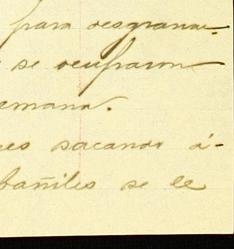 para desgranar
se ocuparon
emana.
es sacando á-
bañiles se le